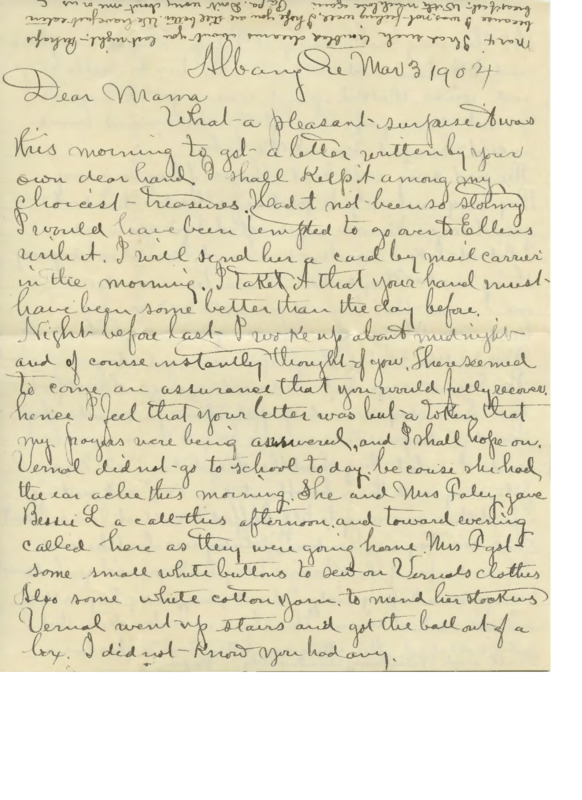 Mar 4 I had such troubled dreams about you last night. Perhaps
because I was not feeling well. I hope you are still better. We have just eaten
breakfast. Will
Albany Ore Mar 3 1904
Dear Mama
What a pleasant surprise it was
this morning to get a letter written by your
own dear hand. I shall keep it among my
choicest treasures. Had it not been so stormy
I would have been tempted to go over to Ellens
with it. I will send her a card by mail carrier
in the morning. I take it that your hand must
have been some better than the day before.
Night before last I woke up about midnight
and of course instantly thought of you. There seemed
to come an assurance that you would fully recover.
hence I feel that your letter was but a token that
my prayers were being answered, and I shall hope on.
Vernal did not go to school to day, because she had
the ear ache this morning. She and Mrs Paley gave
Bessie L a call this afternoon, and toward evening
called here as they were going home. Mrs P got
some small white buttons to sew on Vernals clothes
Also some white cotton yarn, to mend her stockings
Vernal went up stairs and got the ball out of a
box. I did not know you had any.